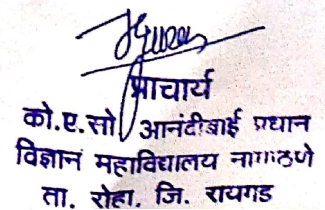 प्राचार्य
को.ए.सो आनंदीबाई प्रधान
विज्ञान महाविद्यालय नागोठणे
ता. रोहा. जि. रायगड